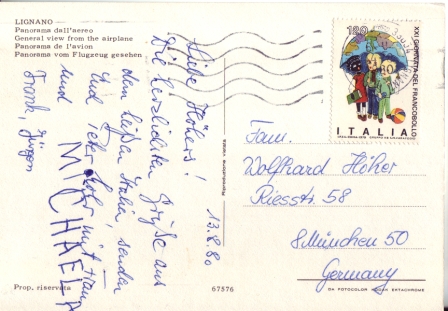 LIGNANO —
Panorama dall'aereo
General view from the airplane
Panorama de l'avion
Panorama vom Flugzeug gesehen
13.8.80
Liebe Höhers!
Die herzlichsten Grüße aus
dem heißen Italien senden
Euch Peter Höher mit
Frank, Jürgen
und MICHAELA
Prop. riservata
67576
180
XXI GIORNATA DEL FRANCOBOLLO
ITALIA
Fam.
Wolfhard Höher
Riesstr. 58
8 München 50
Germany
DA FOTOCOLOR KODAK EKTACHROME